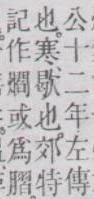 公十二年左傳
也。寒、歇也。郊特
記作爓或爲